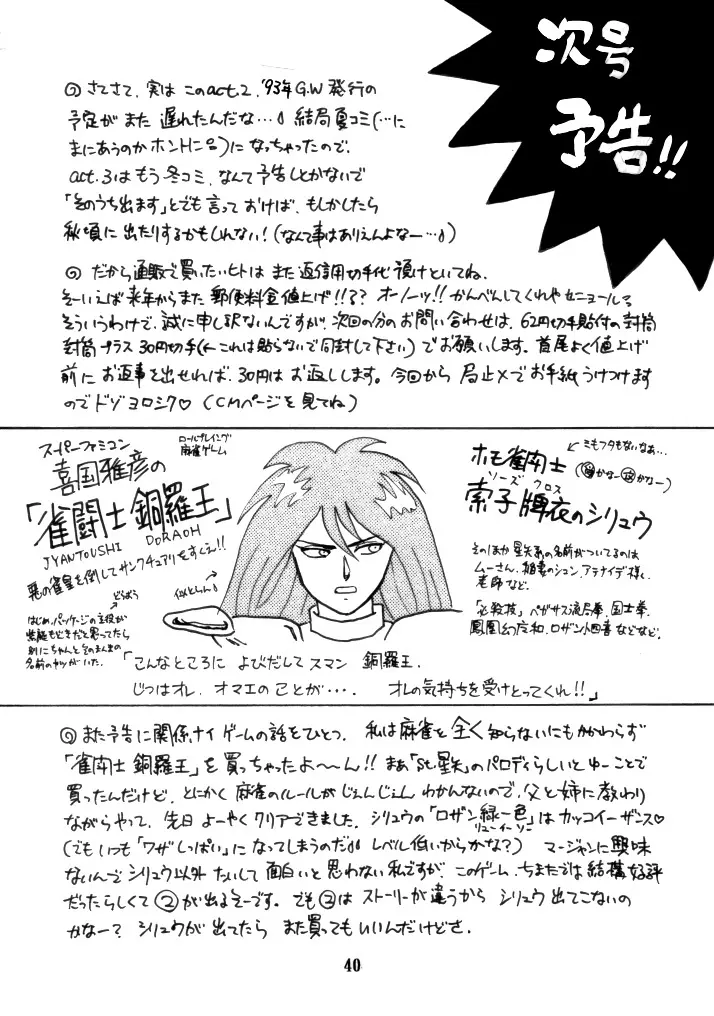 次号
予告!!
◎ さてさて、実は このact2、'93年G.W発行の
予定が また 遅れたんだな…。結局夏コミ(…に
まにあうのか ホントに)になっちゃったので、
act.3は もう冬コミ、なんて予告しとかないで
「そのうち出ます」とでも言っておけば、もしかしたら
秋頃に出たりするかもしれない!(なんて事はありえんよなー…)
◎ だから通販で買いたいヒトは また返信用切手代預けといてね。
そーいえば来年からまた 郵便料金値上げ!!?? オーノーッ!! かんべんしてくれやセニョール
そういうわけで、誠に申し訳ないんですが、次回の分のお問い合わせは、62円切手貼付の封筒
封筒プラス 30円切手(←これは貼らないで同封して下さい)でお願いします。首尾よく値上げ
前に お返事を出せれば、30円は お返しします。今回から 局止メでお手紙うけつけます
のでドゾヨロシク♡ (CMページを見てね)
スーパーファミコン
ロールプレイング
麻雀ゲーム
喜国雅彦の
「雀闘士 銅羅王」
JYANTOUSHI DORAOH
悪の雀皇を倒してサンクチュアリをすくえ!!
どらおう
はじめ、パッケージの主役が
紫龍もどきだと思ってたら
別にちゃんとそのまんまの
名前のヤツがいた。
似とらん
ホモ雀闘士
←ミもフタもないなぁ…
ソーズ クロス
索子牌衣のシリュウ
そのほか 星矢系の名前がついてるのは
ムーさん、稲妻のシュン、アテナイデ様、
老師など。
「必殺技」ペガサス流局拳、国士拳、
鳳凰幻左和、ロザント四喜などなど。
「こんなところに よびだしてスマン 銅羅王、
じつはオレ、オマエのことが…。 オレの気持ちを受けとってくれ!!」
◎ また予告に関係ナイゲームの話をひとつ、私は麻雀を全く知らないにもかかわらず
「雀闘士 銅羅王」を買っちゃったよ〜ん!! まあ「St.星矢」のパロディらしいとゆーことで
買ったんだけど、とにかく 麻雀のルールがじぇんじぇん わかんないので、父と姉に教わり
ながらやって、先日 よーやくクリアできました。シリュウの「ロザン緑一色」はカッコイーザンス♡
リューイーソー
(でもいつも「ワザしっぱい」になってしまうのだ レベル低いからかな?) マージャンに興味
ないんで シリュウ以外 たいして面白いと思わない私ですが、このゲーム、ちまたでは結構好評
だったらしくて②が出るそーです。でも②は ストーリーが違うから シリュウ出てこないの
かなー? シリュウが出てたら また買ってもいいんだけどさ。
40